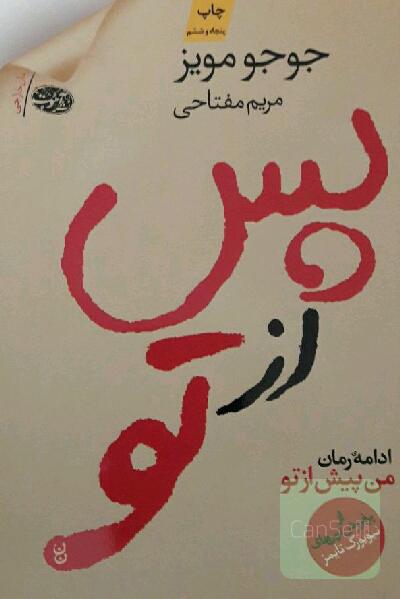 چاپ
پنجاه و ششم
جوجو مویز
مریم مفتاحی
پس
از
تو
ادامهٔ رمان
من پیش از تو
نیویورک تایمز
CanSella